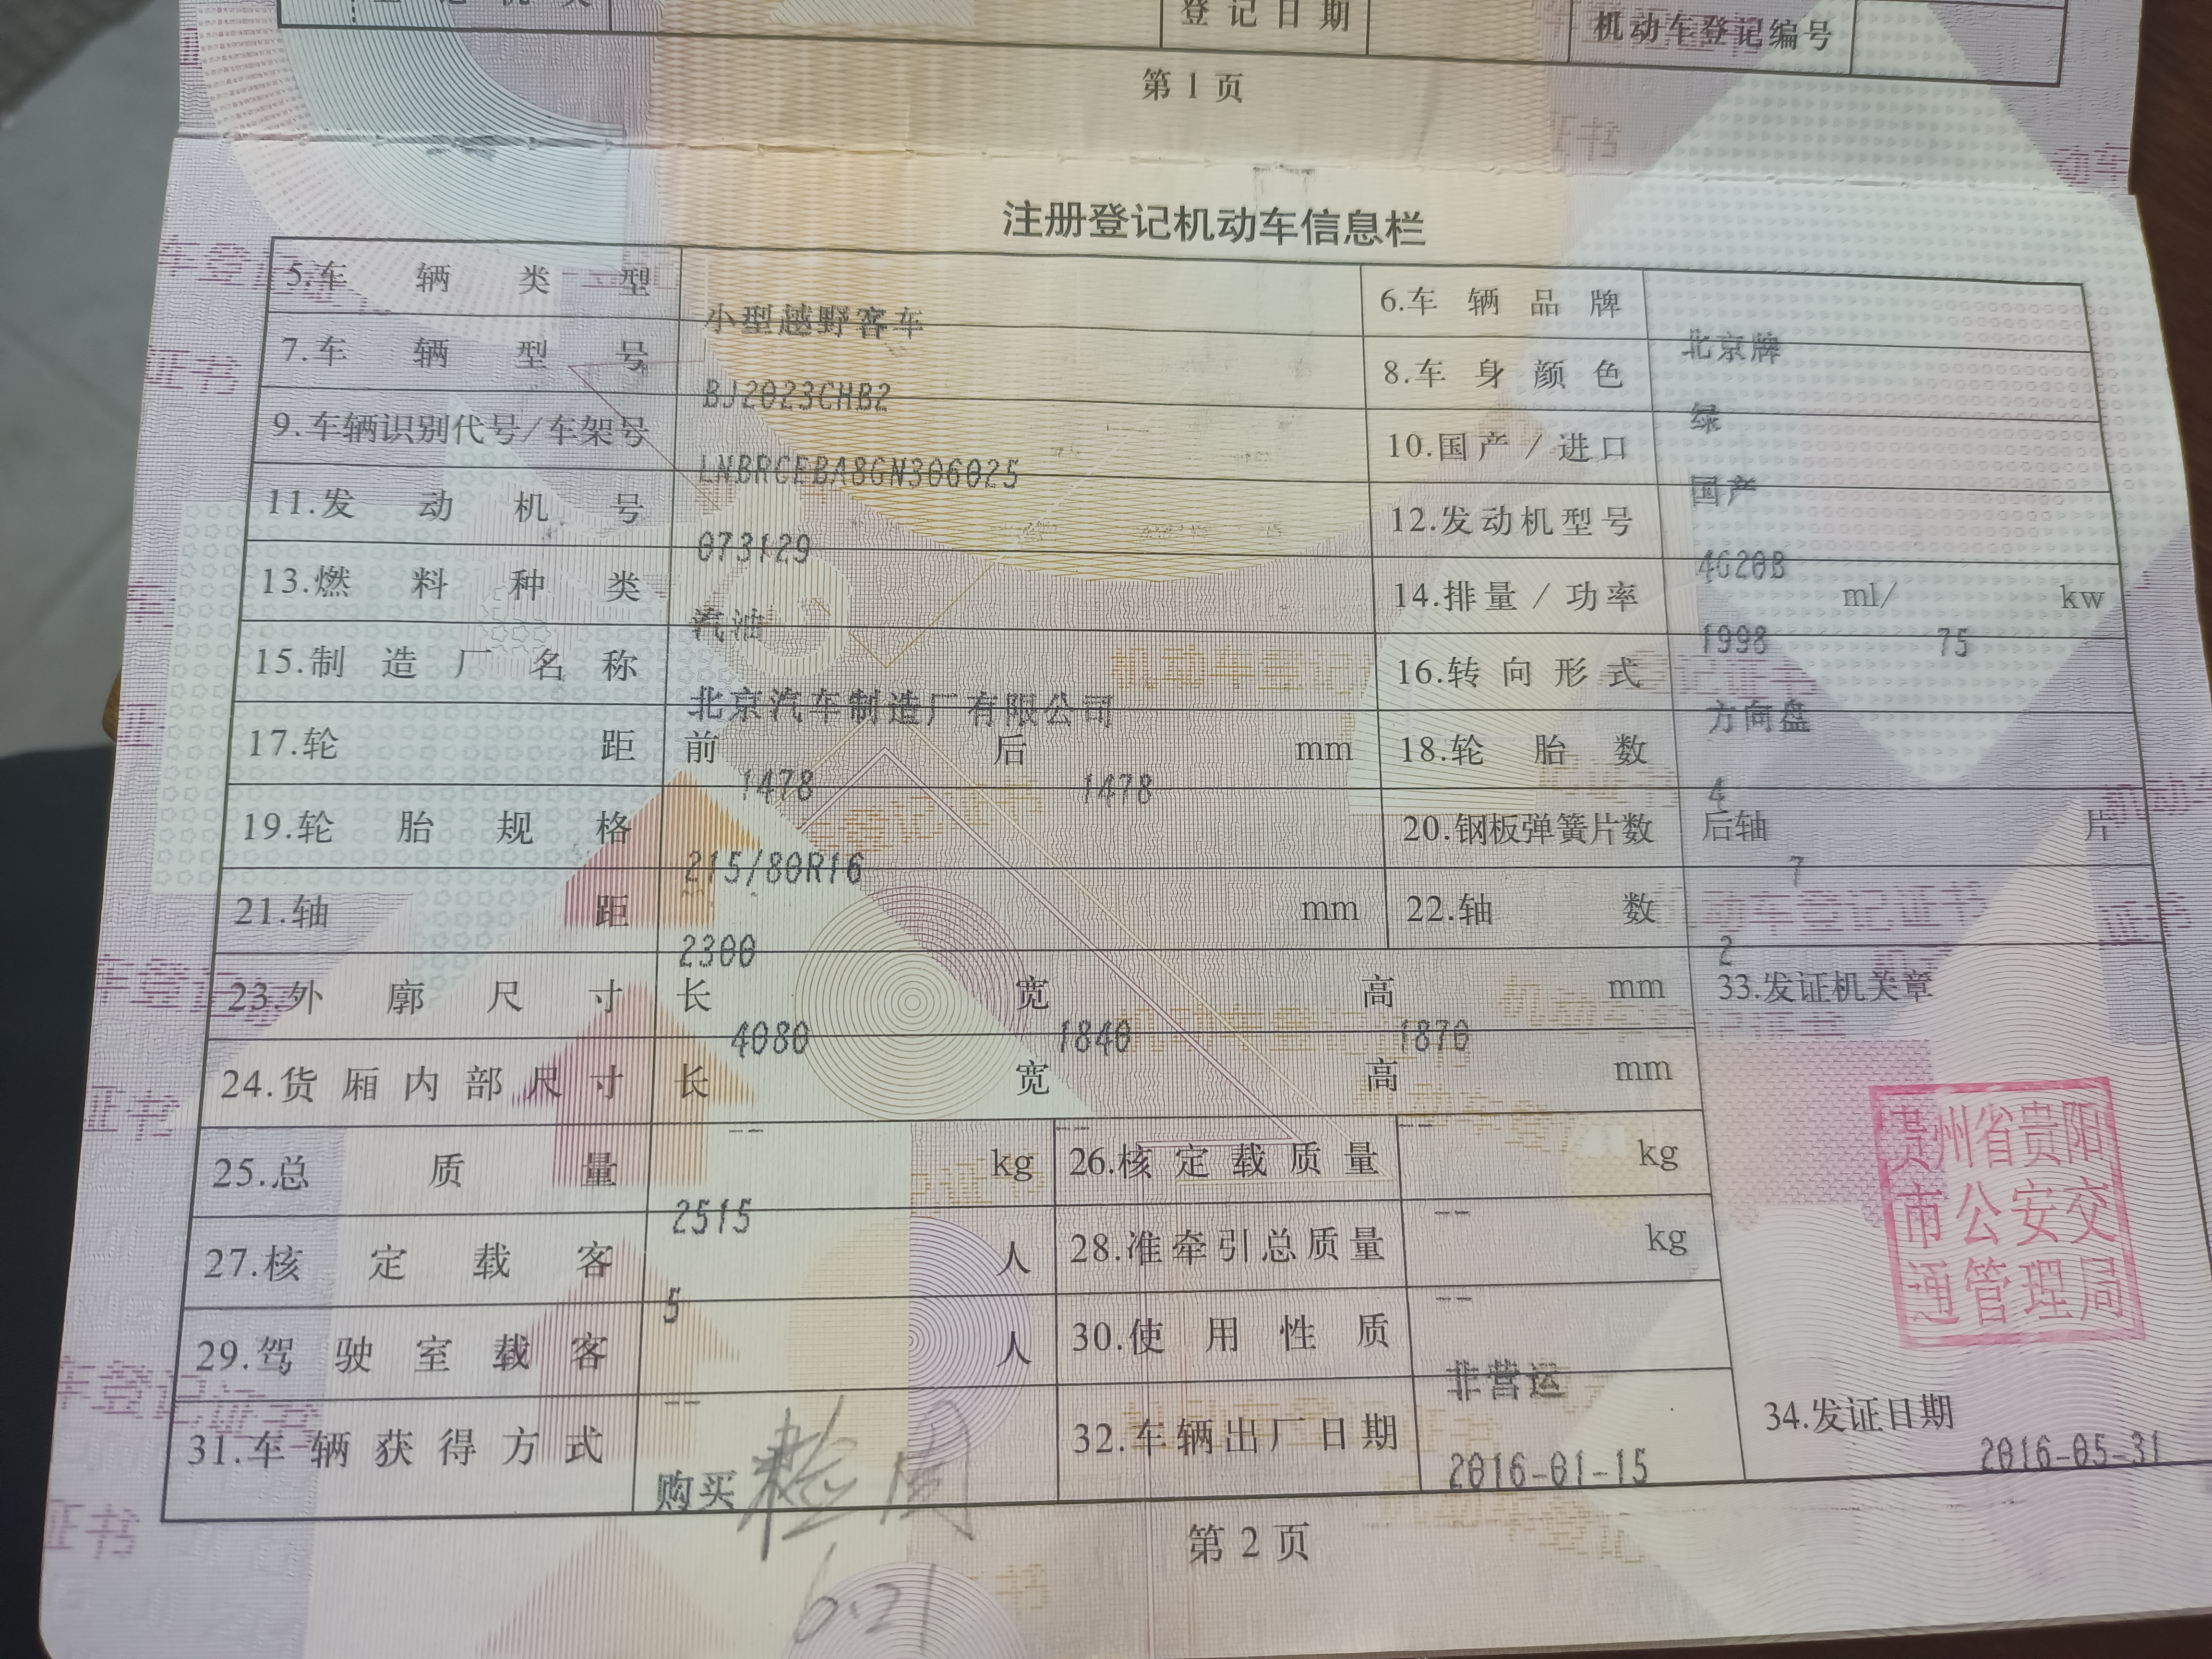 登记日期
机动车登记编号
第1页
注册登记机动车信息栏
5.车辆类型 小型越野客车 6.车辆品牌 北京牌
7.车辆型号 BJ2023CHB2 8.车身颜色 绿
9.车辆识别代号/车架号 LNBRCEBA8GN306025 10.国产/进口 国产
11.发动机号 073129 12.发动机型号 4G20B
13.燃料种类 汽油 14.排量/功率 1998 ml/ 75 kw
15.制造厂名称 北京汽车制造厂有限公司 16.转向形式 方向盘
17.轮距 前 1478 后 1478 mm 18.轮胎数 4
19.轮胎规格 215/80R16 20.钢板弹簧片数 后轴 7 片
21.轴距 2300 mm 22.轴数 2
23.外廓尺寸 长 4080 宽 1840 高 1870 mm 33.发证机关章
24.货厢内部尺寸 长 -- 宽 -- 高 -- mm
贵州省贵阳
市公安交
通管理局
25.总质量 2515 kg 26.核定载质量 -- kg
27.核定载客 5 人 28.准牵引总质量 -- kg
29.驾驶室载客 -- 人 30.使用性质 非营运
31.车辆获得方式 购买 32.车辆出厂日期 2016-01-15 34.发证日期 2016-05-31
第2页
6.21